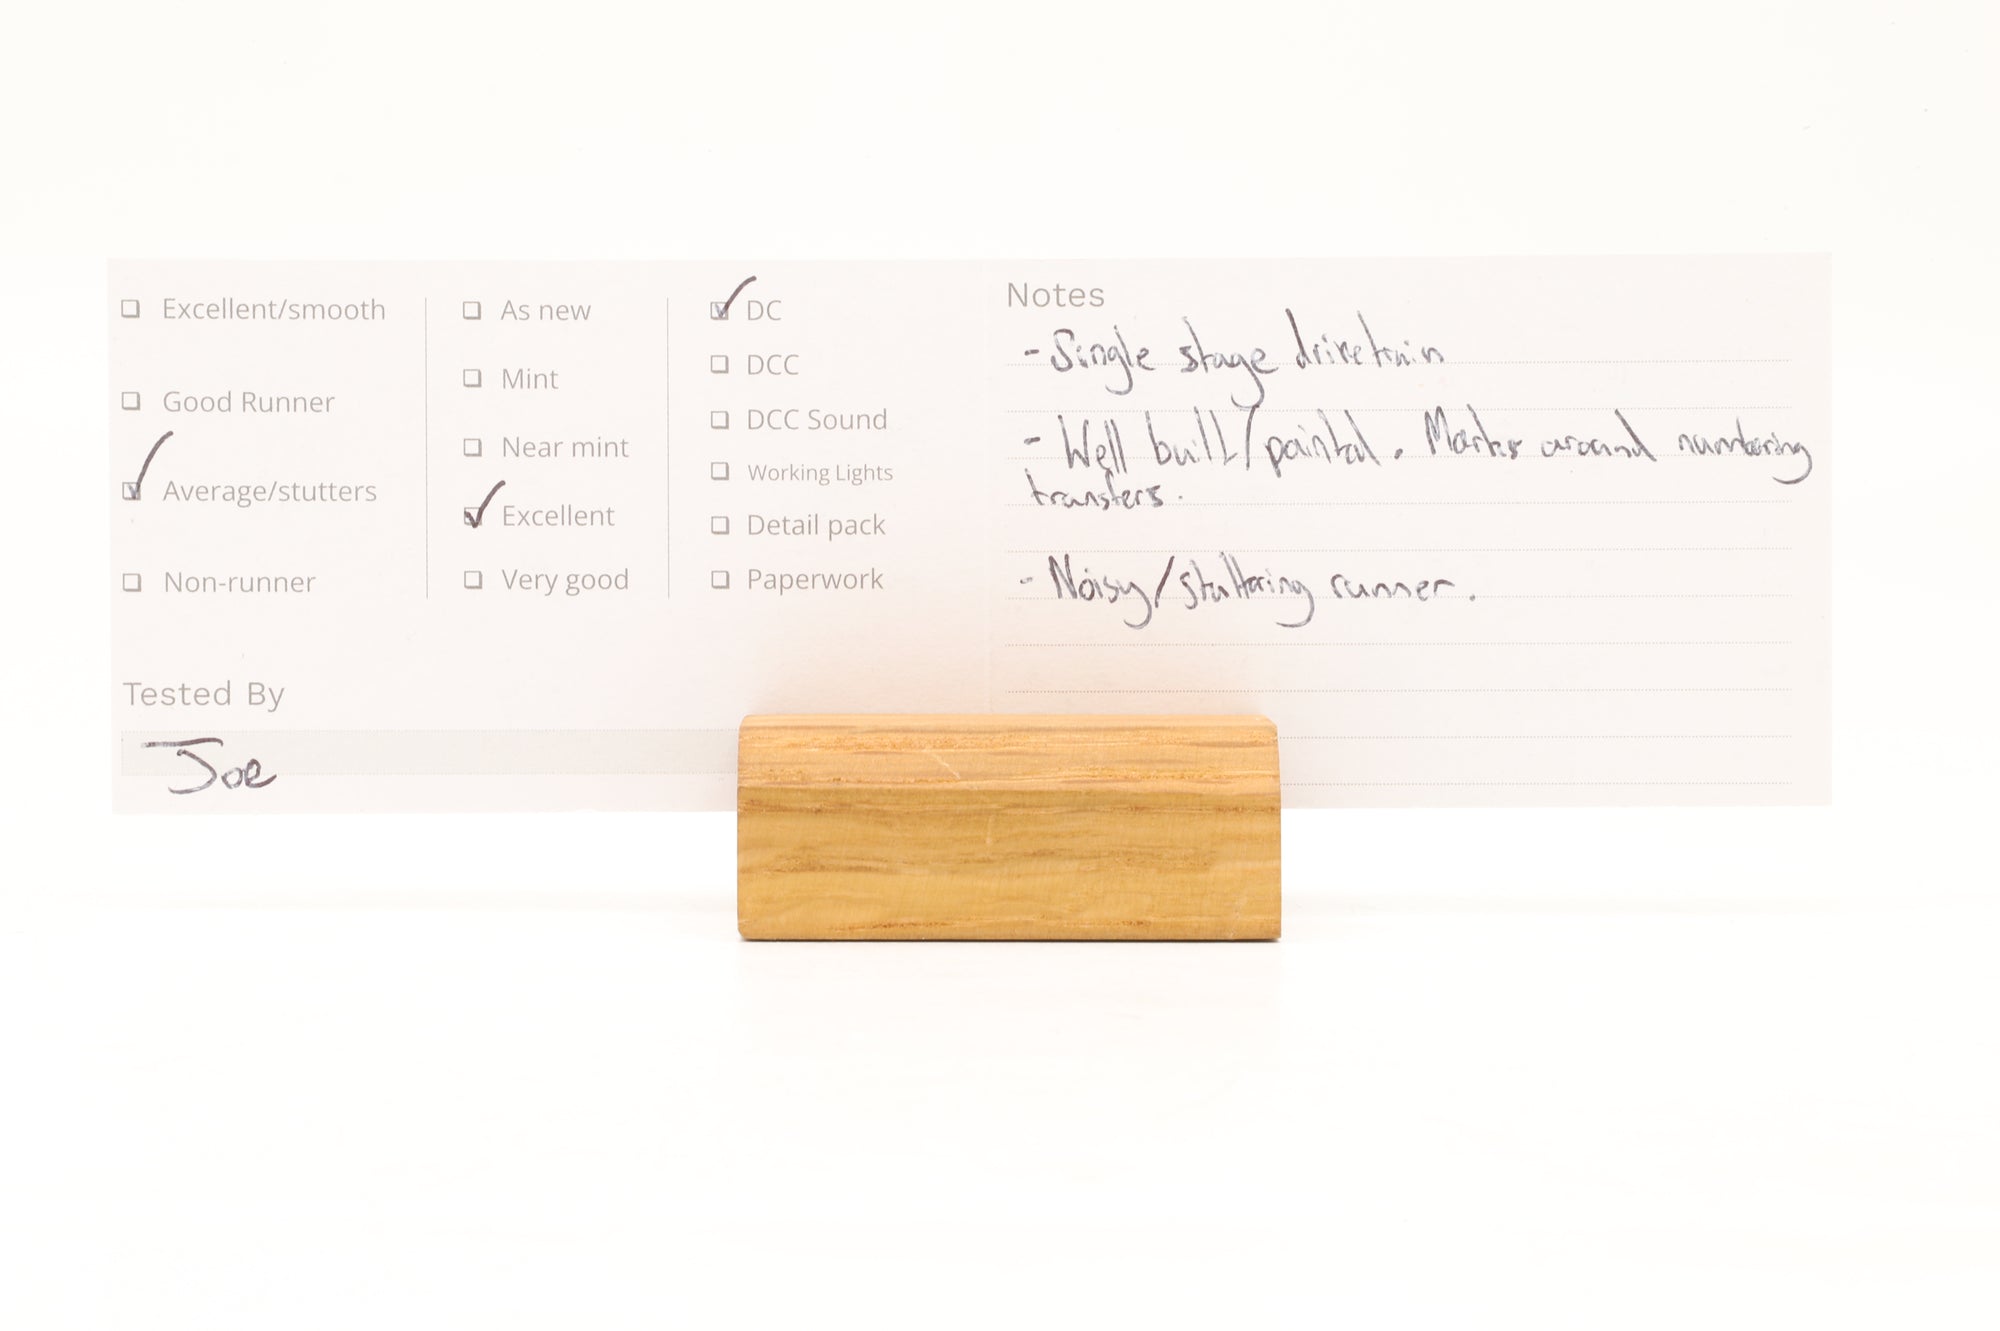 Excellent/smooth
Good Runner
Average/stutters
Non-runner
As new
Mint
Near mint
Excellent
Very good
DC
DCC
DCC Sound
Working Lights
Detail pack
Paperwork
Tested By
Joe
Notes
- Single stage drivetrain
- Well built/painted. Marks around numbering
transfers.
- Noisy/stuttering runner.